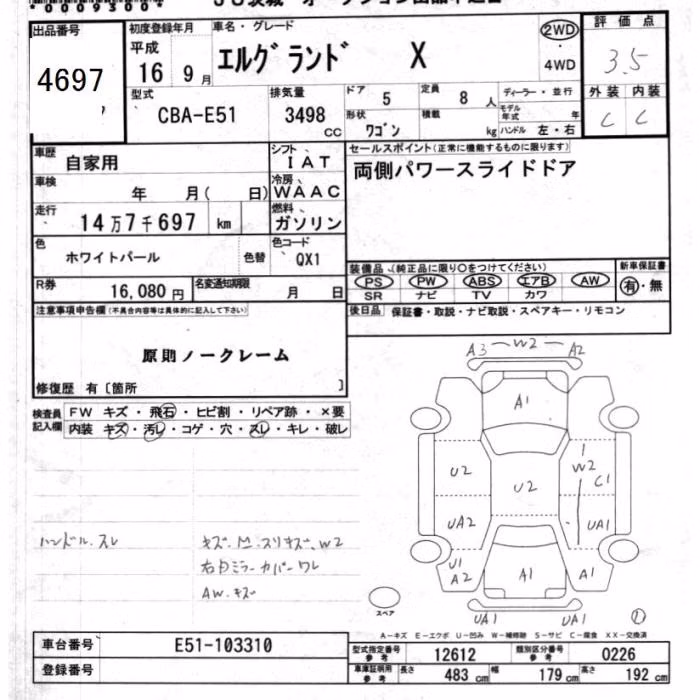 *00093500*
出品番号
4697
初度登録年月
平成
16 9月
車名・グレード
エルグランド X
2WD
4WD
評価点
3.5
外装 内装
C C
型式
CBA-E51
排気量
3498
CC
ドア 5
定員 8 人
形状 ワゴン
積載 kg
ディーラー・並行
モデル年式 年
ハンドル 左・右
車歴
自家用
シフト
IAT
車検
年 月( 日)
冷房
WAAC
走行
14万7千697 km
燃料
ガソリン
色
ホワイトパール
色替
色コード
QX1
R券
16,080円
名変通知期限
月 日
セールスポイント(正常に機能するものに限ります)
両側パワースライドドア
装備品(純正品に限り○をつけてください)
PS PW ABS エアB AW
SR ナビ TV カワ
新車保証書
有・無
後日品 保証書・取説・ナビ取説・スペアキー・リモコン
注意事項申告欄(不具合内容等は具体的に記入して下さい)
原則ノークレーム
修復歴 有〔箇所 〕
検査員
記入欄
FW キズ・飛石・ヒビ割・リペア跡・×要
内装 キズ・汚レ・コゲ・穴・スレ・キレ・破レ
ハンドル、スレ
キズ・凹・スリキズ、W2
右Dミラーカバーワレ
AW、キズ
A3 W2 A2
A1
U2
U2
W2
C1
UA2
UA1
U1
A2
A1
A1
UA1
UA1
スペア
A-キズ E-エクボ U-凹み W-補修跡 S-サビ C-腐食 XX-交換済
車台番号
E51-103310
登録番号
型式指定番号
参考
12612
類別区分番号
参考
0226
車庫証明用
参考
長さ 483 cm
幅 179 cm
高さ 192 cm